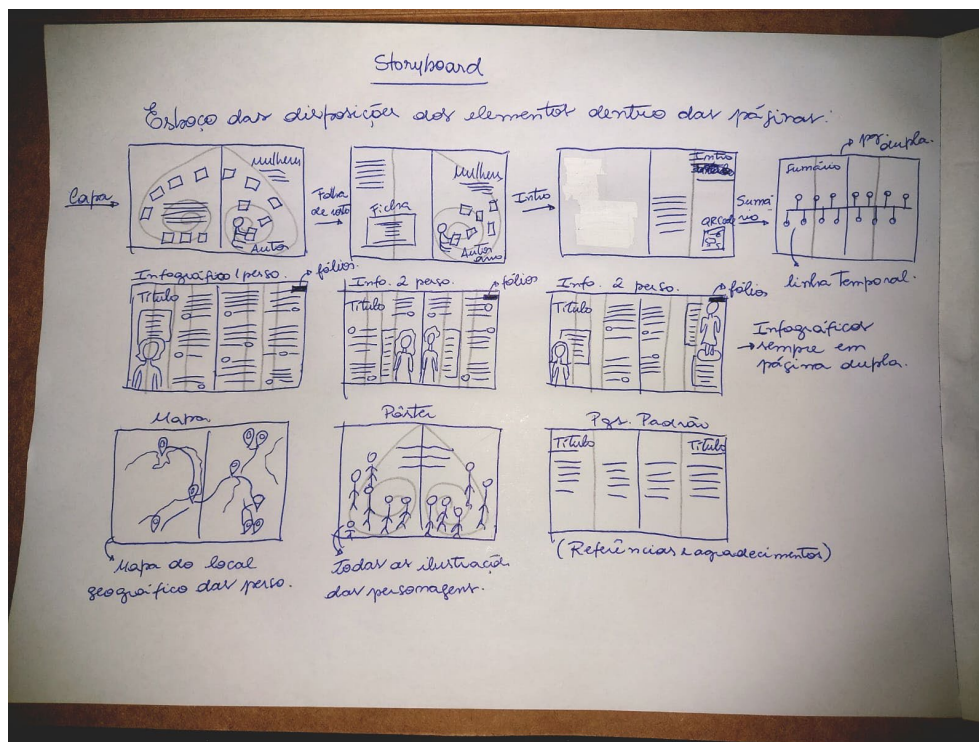 Storyboard
Esboço das disposições dos elementos dentro das páginas:
Capa
Mulheres
Autor
Folha de rosto
Ficha
Mulheres
Autor
ano
Intro
Intro
QRCode
Sumá
rio
Sumário
pg dupla.
linha temporal.
Infográfico 1 perso.
fólios
Título
Info. 2 perso.
fólios
Título
Info. 2 perso.
fólios
Título
Infográficos
sempre em
página dupla.
Mapa
Mapa do local
geográfico das perso.
Pôster
Todas as ilustraçõe
das personagens.
Pgs. Padrão
Título
Título
(Referências e agradecimentos)